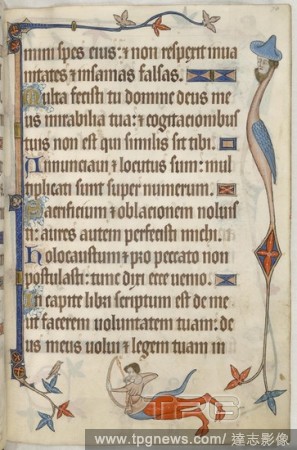 mini spes eius: ⁊ non respexit in ua
nitates ⁊ insanias falsas.
Multa fecisti tu domine deus me
us mirabilia tua: ⁊ cogitacionibus
tuis non est qui similis sit tibi.
Annunciaui ⁊ locutus sum: mul
tiplicati sunt super numerum.
Sacrificium ⁊ oblacionem nolus
ti: aures autem perfecisti michi.
Holocaustum ⁊ pro peccato non
postulasti: tunc dixi ecce uenio.
In capite libri scriptum est de me
ut facerem uoluntatem tuam: de
us meus uolui ⁊ legem tuam in
TPG
www.tpgnews.com/ 達志影像